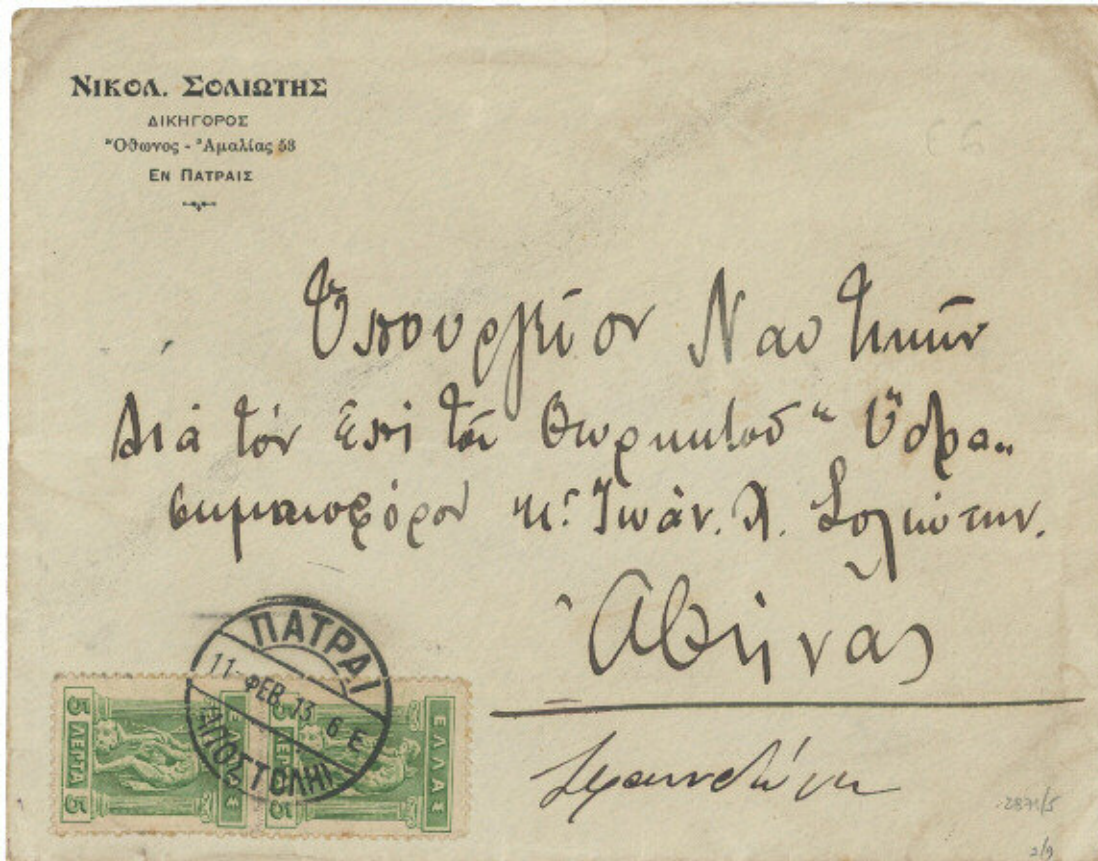 ΝΙΚΟΛ. ΣΟΛΙΩΤΗΣ
ΔΙΚΗΓΟΡΟΣ
Ὄθωνος - Ἀμαλίας 53
ΕΝ ΠΑΤΡΑΙΣ
Ὑπουργεῖον Ναυτικῶν
Διὰ τὸν ἐπὶ τοῦ θωρηκτοῦ "Ὕδρα"
σημαιοφόρον κ. Ἰωάν. Λ. Σολιώτην.
Ἀθήνας
ΠΑΤΡΑΙ
11 ΦΕΒ. 13 6 Ε
ΑΠΟΣΤΟΛΗ
5 ΛΕΠΤΑ 5
ΕΛΛΑΣ
2871/5
2/9